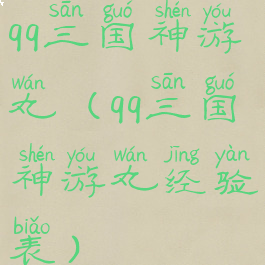 sān guó shén yóu
qq三国神游
wán sān guó
丸（qq三国
shén yóu wán jīng yàn
神游丸经验
biǎo
表）